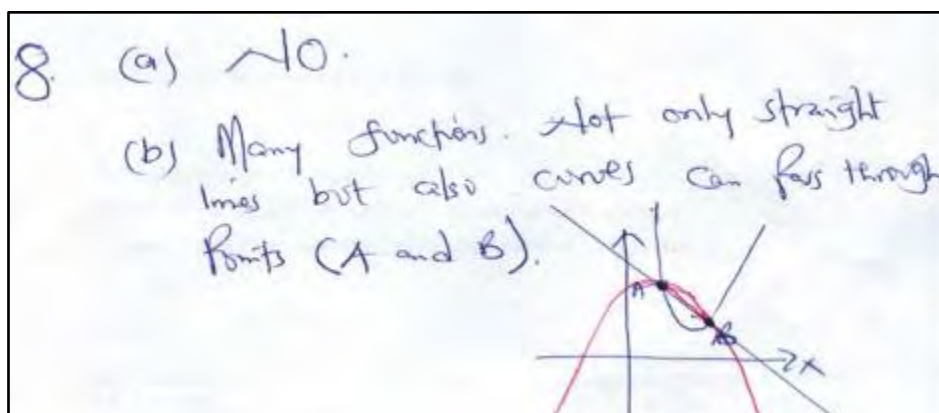 8. (a) No.
(b) Many functions. Not only straight
lines but also curves can pass through
Points (A and B).
A
B
x